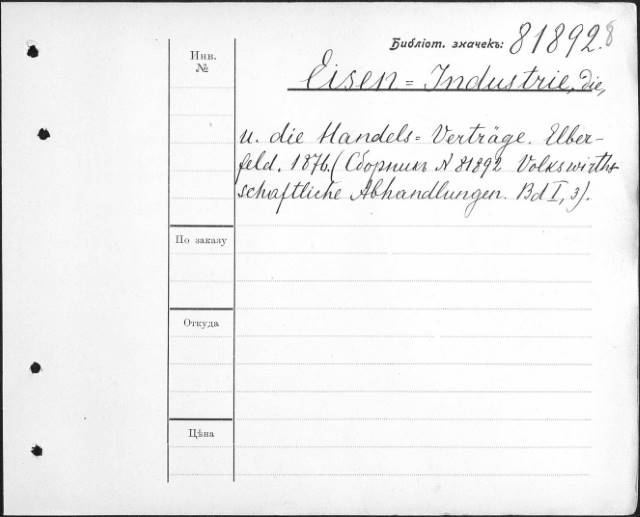 Библіот. значекъ: 81892.8
Инв. №
Eisen=Industrie, die,
u. die Handels=Verträge. Elber-
feld. 1876. (Сборникъ N 81892 Volkswirth-
schaftliche Abhandlungen. Bd I, 3).
По заказу
Откуда
Цѣна